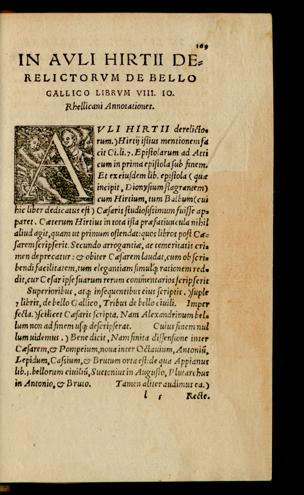 169
IN AVLI HIRTII DE=
RELICTORVM DE BELLO
GALLICO LIBRVM VIII. IO.
Rhellicani Annotationes.
AVLI HIRTII derelicto
rum.) Hirtij istius mentionem fa
cit Ci.li.7. Epistolarum ad Atti
cum in prima epistola sub finem.
Et ex eiusdem lib. epistola (quæ
incipit, Dionysium flagrantem)
cum Hirtium, tum Balbum (cui
hic liber dedicatus est) Cæsaris studiosissimum fuisse ap=
paret. Cæterum Hirtius in tota ista præfatiuncula nihil
aliud agit, quàm ut primum ostendat: quos libros post Cæ=
sarem scripserit. Secundo arrogantiæ, ac temeritatis cri=
men deprecatur: & obiter Cæsarem laudat, cum ob scri=
bendi facilitatem, tum elegantiam simulq́; rationem red=
dit, cur Cæsar ipse suarum rerum commentarios scripserit
Superioribus, atq; insequentibus eius scriptis. ) supple
7 libris, de bello Gallico, Tribus de bello ciuili. Imper
fecta. ) scilicet Cæsaris scripta. Nam Alexandrinum bel=
lum non ad finem usq; descripserat. Cuius finem nul
lum uidemus. ) Bene dicit, Nam finita dissensione inter
Cæsarem, & Pompeium, noua inter Octauium, Antoniũ,
Lepidum, Cassium, & Brutum orta est: de qua Appianus
lib.5. bellorum ciuiliũ, Suetonius in Augusto, Plutarchus
in Antonio, & Bruto. Tamen aliter audimus ea. )
l 5 Recte.